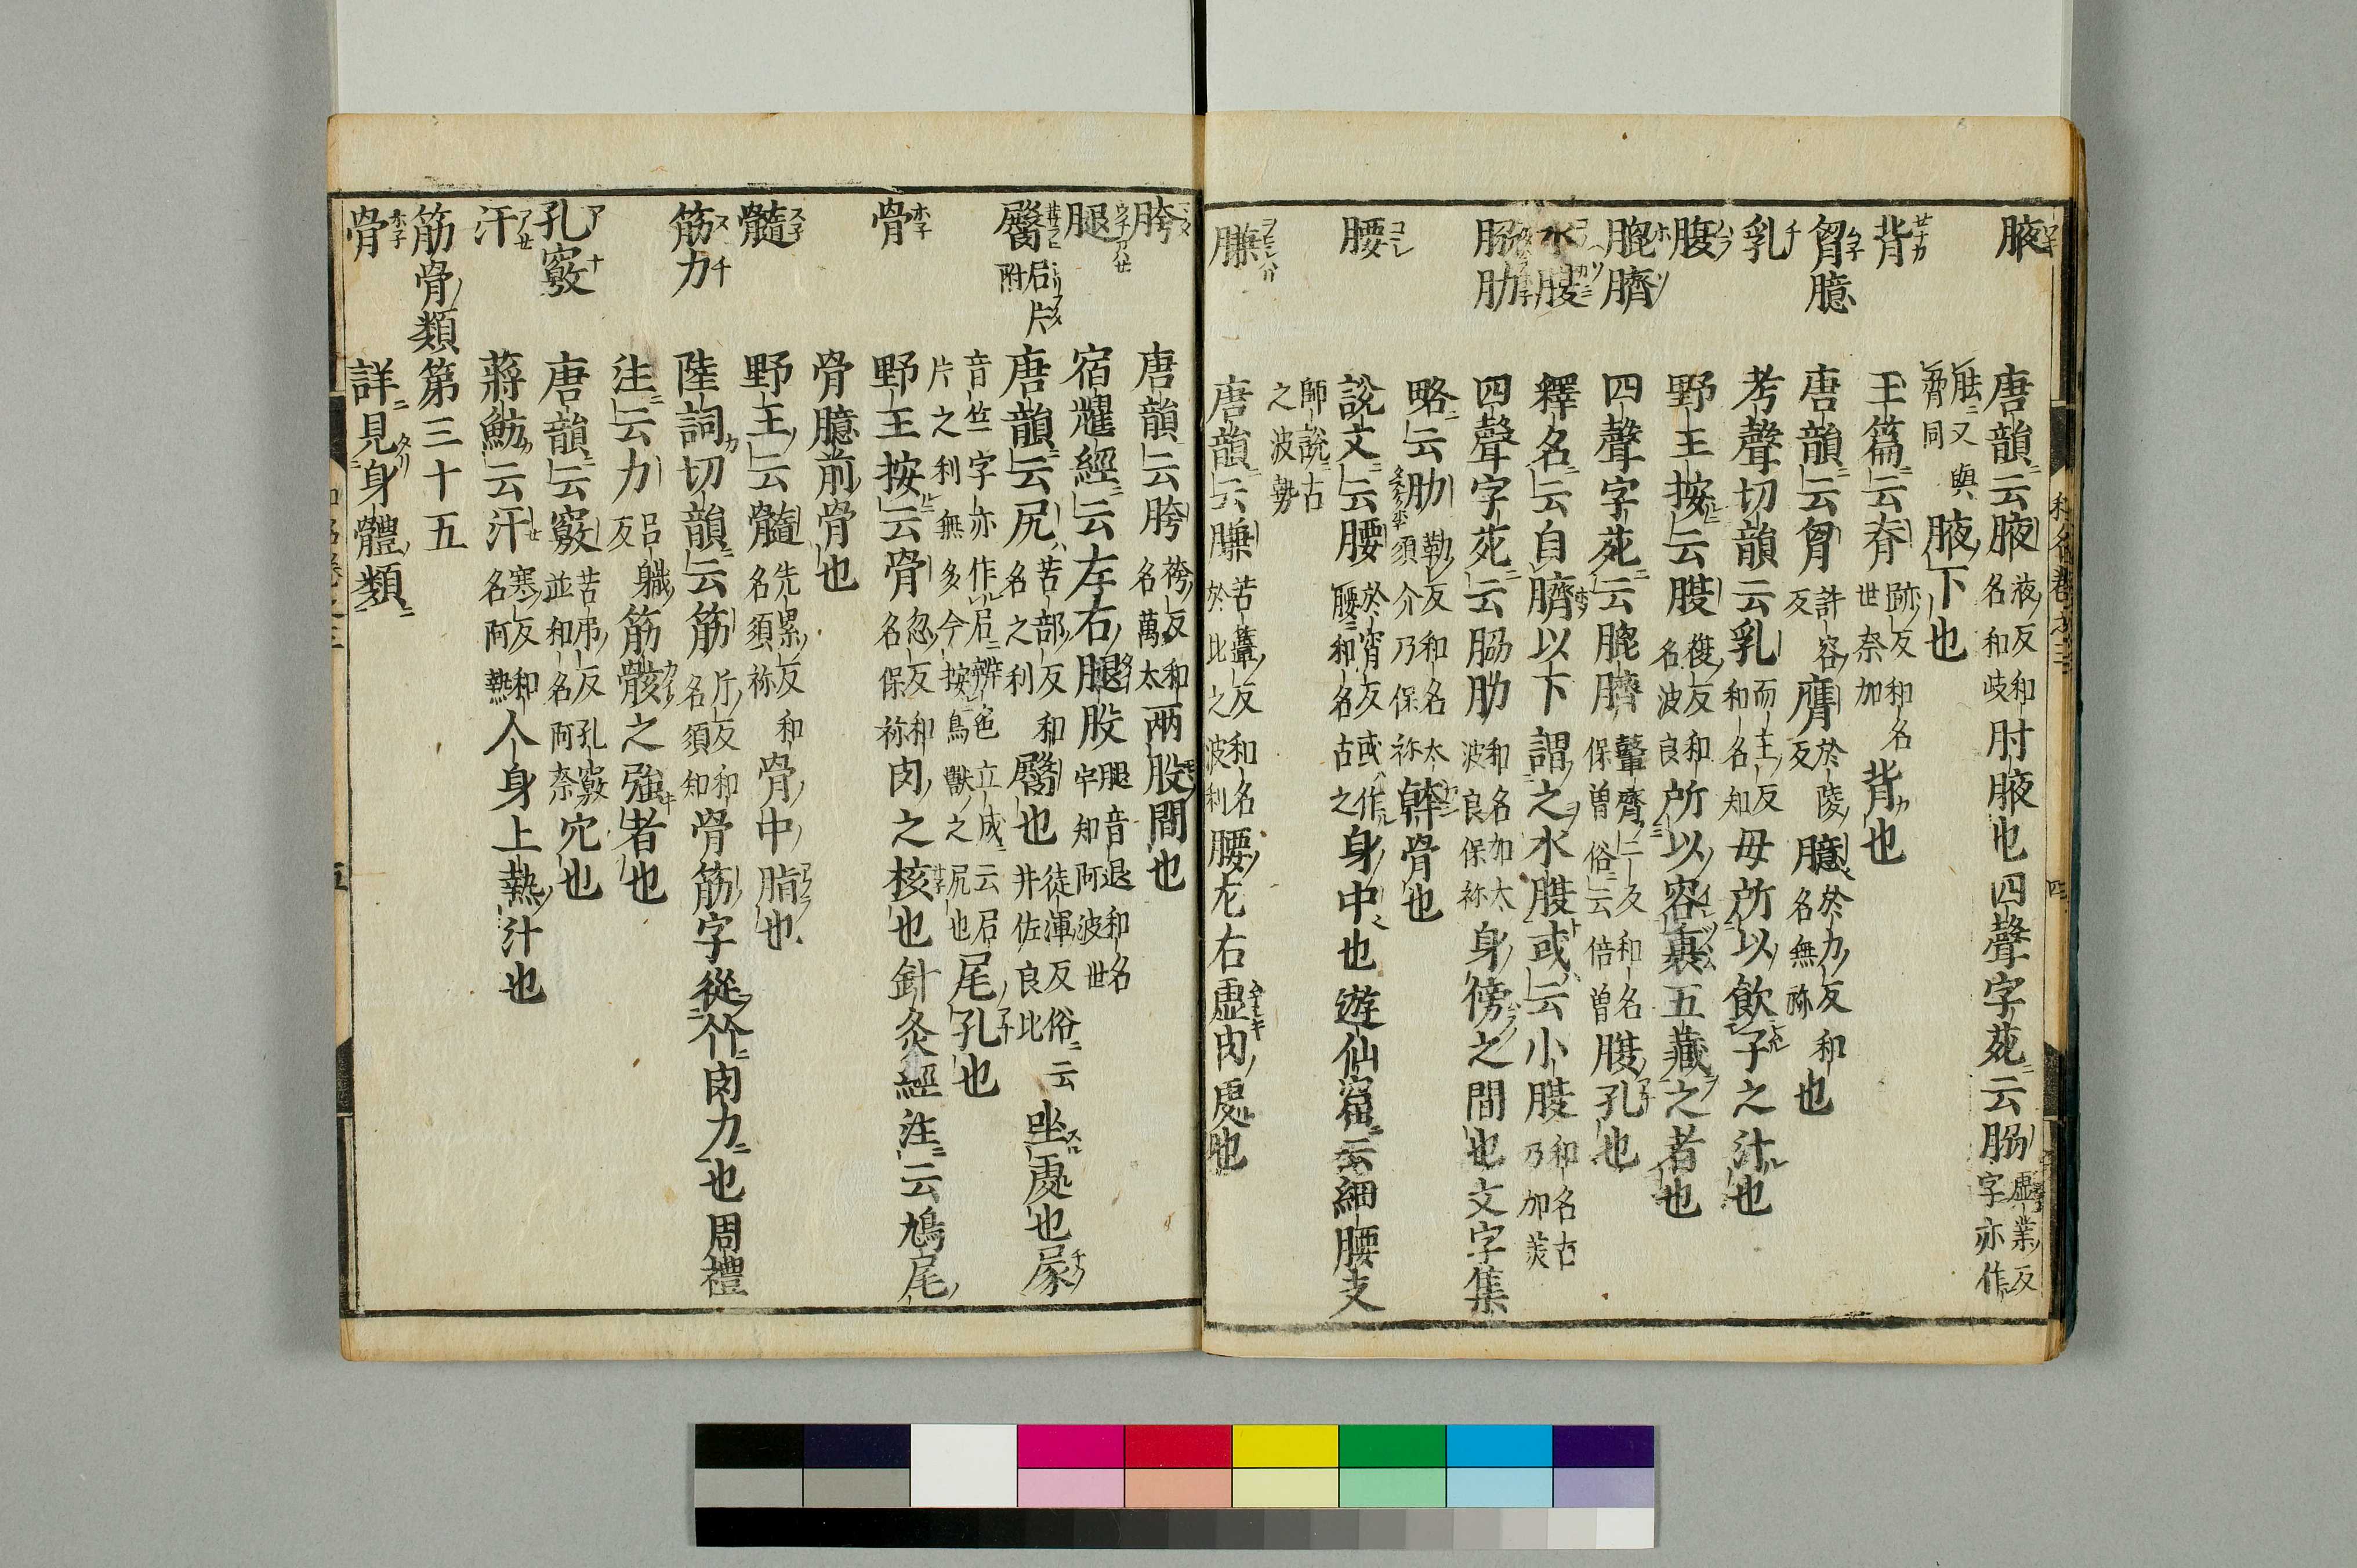 腋 唐韻云腋夜反和名和岐肘腋也四聲字苑云脇虛業反字亦作
胠又與脅同腋下也
背 玉篇云脊跡反和名世奈加背也
胷臆 唐韻云胷許容反膺於陵反臆於力反和名無祢也
乳 考聲切韻云乳而主反和名知母所以飲子之汁也
腹 野王按云腹複反和名波良所以容裹五藏之者也
膍臍 四聲字苑云膍臍鼙齊二反和名保曽俗云倍曽腹孔也
水腹 釋名云自臍以下謂之水腹或云小腹和名古乃加美
脇肋 四聲字苑云脇肋和名加太波良保祢身傍之間也文字集
略云肋勒反和名太須介乃保祢幹骨也
腰 說文云腰於宵反或作𦝫和名古之身中也遊仙窟云細腰支
師說古之波勢
膁 唐韻云膁苦簟反和名於比之波利腰左右虛肉處也
胯 唐韻云胯袴反和名萬太兩股間也
腿 宿耀經云左右腿股腿音退和名宇知阿波世
臀 𡱂片附 唐韻云尻苦部反和名之利臀也徒渾反俗云井佐良比坐處也𡱂
音竺字亦作𡱂辨色立成云𡱂片之利無多今按鳥獸之尻也尾孔也
骨 野王按云骨忽反和名保祢肉之核也針灸經注云鳩尾
骨臆前骨也
髓 野王云髓先累反和名須祢骨中脂也
筋力 陸詞切韻云筋斤反和名須知骨筋字從竹肉力也周禮
注云力呂職反筋骸之強者也
孔竅 唐韻云竅苦弔反孔竅並和名阿奈穴也
汗 蔣魴云汗寒反和名阿熱人身上熱汁也
筋骨類第三十五
骨 詳見身體類